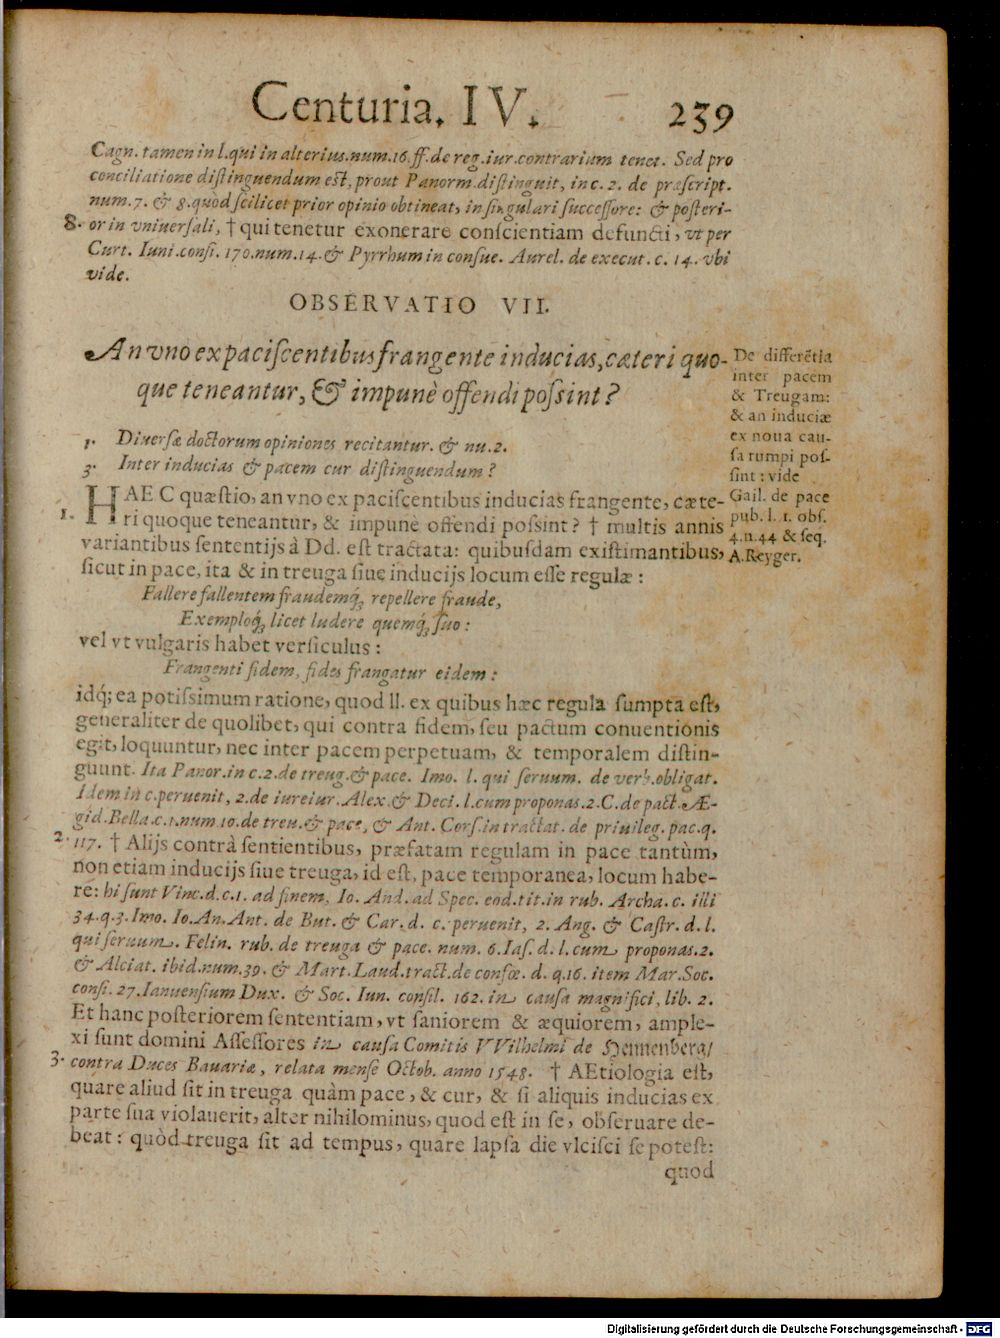 Centuria. IV. 239
Cagn. tamen in l. qui in alterius. num. 16. ff. de reg. iur. contrarium tenet. Sed pro
conciliatione distinguendum est, prout Panorm. distinguit, in c. 2. de præscript.
num. 7. & 8. quòd scilicet prior opinio obtineat, in singulari successore: & posteri-
8. or in vniuersali, † qui tenetur exonerare conscientiam defuncti, vt per
Curt. Iuni. consi. 170. num. 14. & Pyrrhum in consue. Aurel. de execut. c. 14. vbi
vide.
OBSERVATIO VII.
An vno ex paciscentibus frangente inducias, cæteri quo-
que teneantur, & impunè offendi possint?
De differētia
inter pacem
& Treugam:
& an induciæ
ex noua cau-
sa rumpi pos-
sint: vide
Gail. de pace
pub. l. 1. obs.
4. n. 44 & seq.
A. Reyger.
1. Diuersæ doctorum opiniones recitantur. & nu. 2.
3. Inter inducias & pacem cur distinguendum?
HAEC quæstio, an vno ex paciscentibus inducias frangente, cæte-
1. ri quoque teneantur, & impunè offendi possint? † multis annis
variantibus sententijs à Dd. est tractata: quibusdam existimantibus,
sicut in pace, ita & in treuga siue inducijs locum esse regulæ:
Fallere fallentem fraudemq́ꝫ repellere fraude,
Exemploq́ꝫ licet ludere quemq́ꝫ suo:
vel vt vulgaris habet versiculus:
Frangenti fidem, fides frangatur eidem:
idq́; ea potissimum ratione, quod ll. ex quibus hæc regula sumpta est,
generaliter de quolibet, qui contra fidem, seu pactum conuentionis
egit, loquuntur, nec inter pacem perpetuam, & temporalem distin-
guunt. Ita Panor. in c. 2. de treug. & pace. Imo. l. qui seruum. de verb. obligat.
Idem in c. peruenit, 2. de iureiur. Alex. & Deci. l. cum proponas. 2. C. de pact. Æ-
gid. Bella. c. 1. num 10. de treu. & pace, & Ant. Cors. in tractat. de priuileg. pac. q.
2. 117. † Alijs contrà sentientibus, præfatam regulam in pace tantùm,
non etiam inducijs siue treuga, id est, pace temporanea, locum habe-
re: hi sunt Vinc. d. c. 1. ad finem, Io. And. ad Spec. eod. tit. in rub. Archa. c. illi
34. q. 3. Imo. Io. An. Ant. de But. & Car. d. c. peruenit, 2. Ang. & Castr. d. l.
qui seruum. Felin. rub. de treuga & pace. num. 6. Ias. d. l. cum proponas. 2.
& Alciat. ibid. num. 39. & Mart. Laud. tract. de confœ. d. q. 16. item Mar. Soc.
consi. 27. Ianuensium Dux. & Soc. Iun. consil. 162. in causa magnifici, lib. 2.
Et hanc posteriorem sententiam, vt saniorem & æquiorem,ample-
xi sunt domini Assessores in causa Comitis VVilhelmi de Hennenberg/
3. contra Duces Bauariæ, relata mense Octob. anno 1548. † AEtiologia est,
quare aliud sit in treuga quàm pace, & cur, & si aliquis inducias ex
parte sua violauerit, alter nihilominus, quod est in se, obseruare de-
beat: quòd treuga sit ad tempus, quare lapsa die vlcisci se potest:
quod
Digitalisierung gefördert durch die Deutsche Forschungsgemeinschaft - DFG